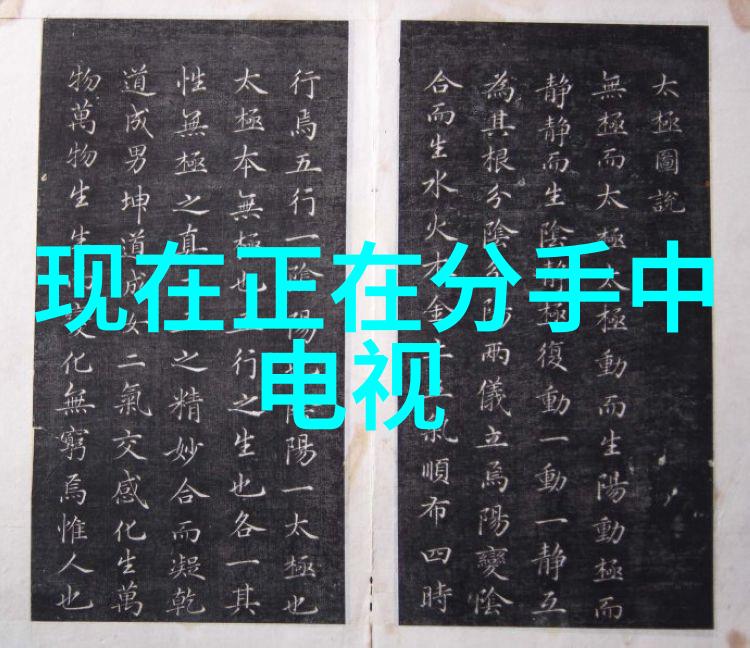 太極圖說
無極而太極太極動而生陽動極而
静静而生陰静極復動一動一静互
為其根分陰分陽兩儀立焉陽變陰
合而生水火木金氣順布四時
行焉五行一陰陽也陰陽一太極也
太極本無極也行之生也各一其
性無極之真之精妙合而凝乾
道成男坤道成女二氣交感化生萬
物萬物生生變化無窮焉惟人也
现在正在分手中
电视